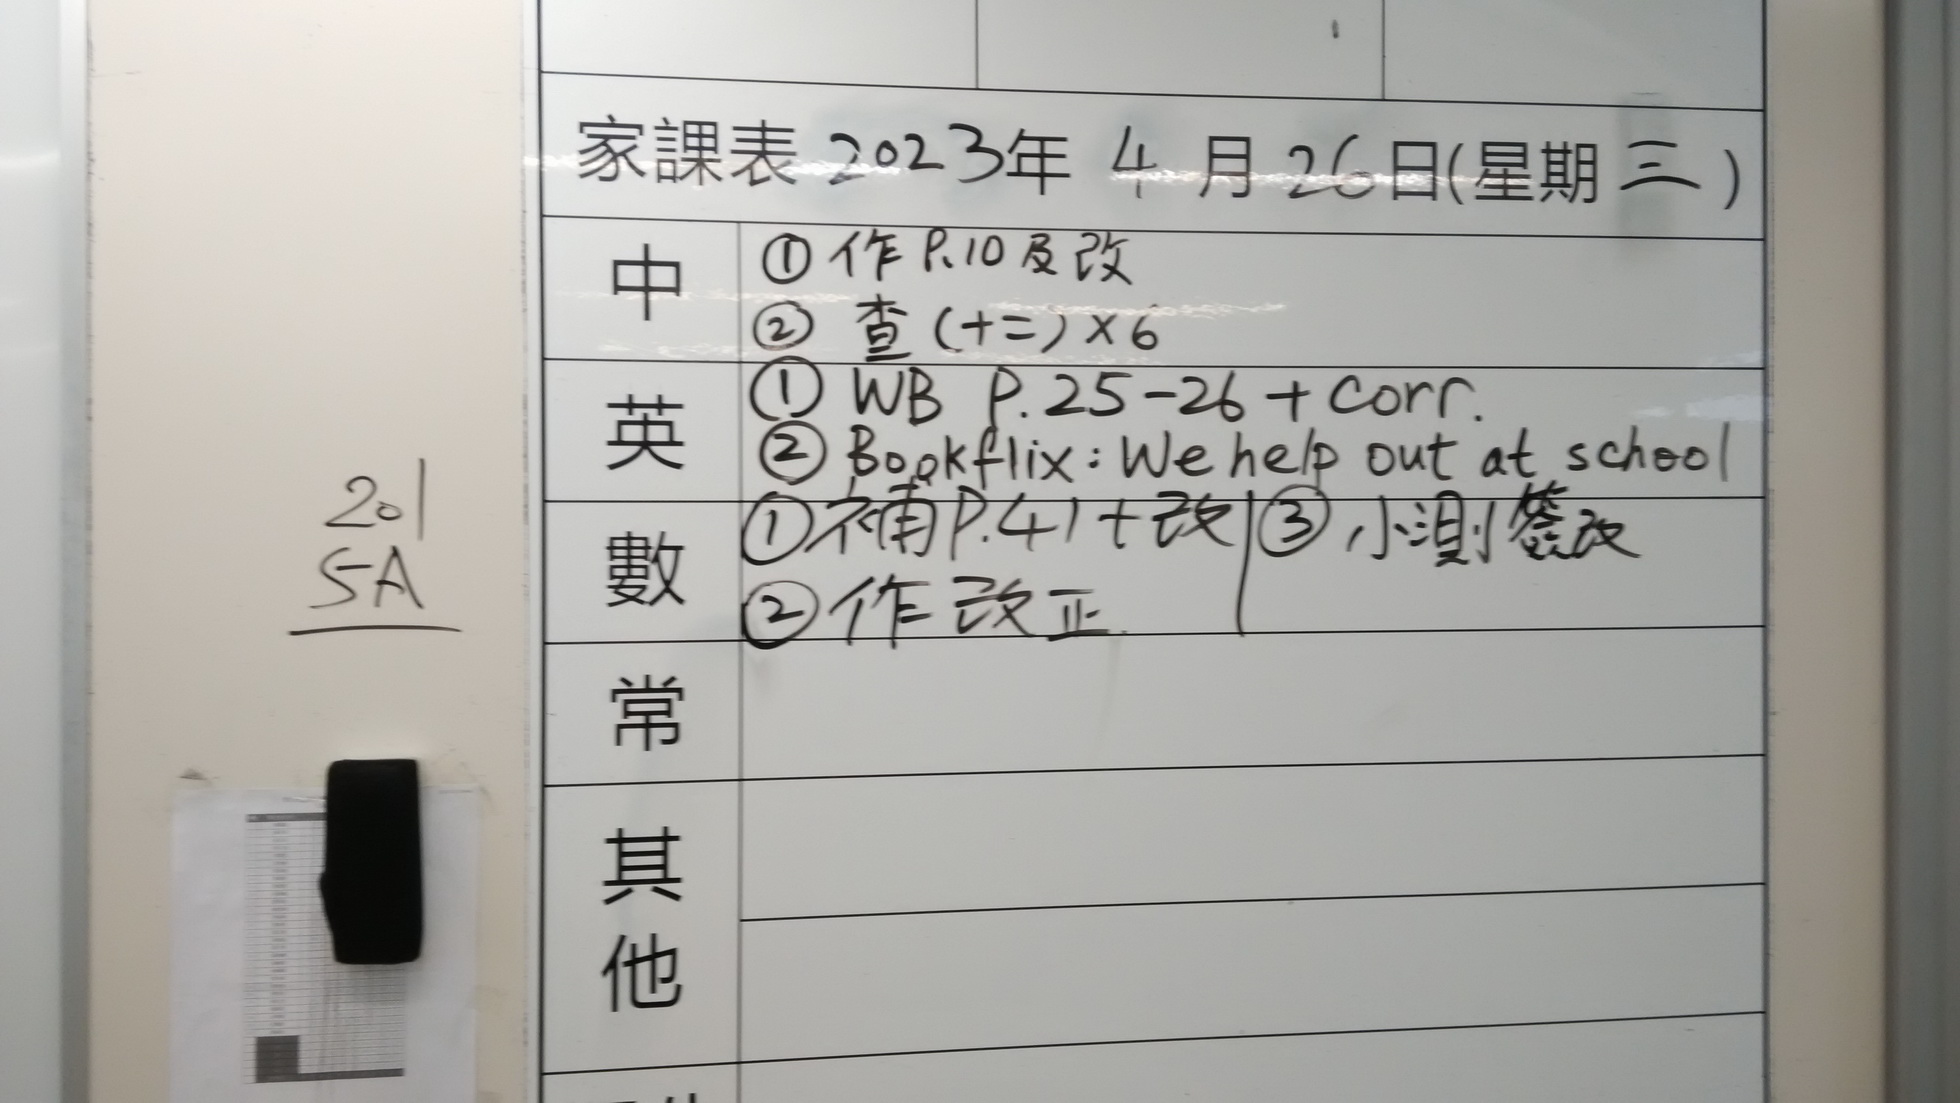 家課表 2023年 4 月 26日(星期 三 )
中
① 作 P.10 及 改
② 查 (十二) × 6
英
① WB P. 25-26 + corr.
② Bookflix: We help out at school
數
① 補 P.41 + 改 ③ 小測簽改
② 作 改 正
常
其
他
201
5A